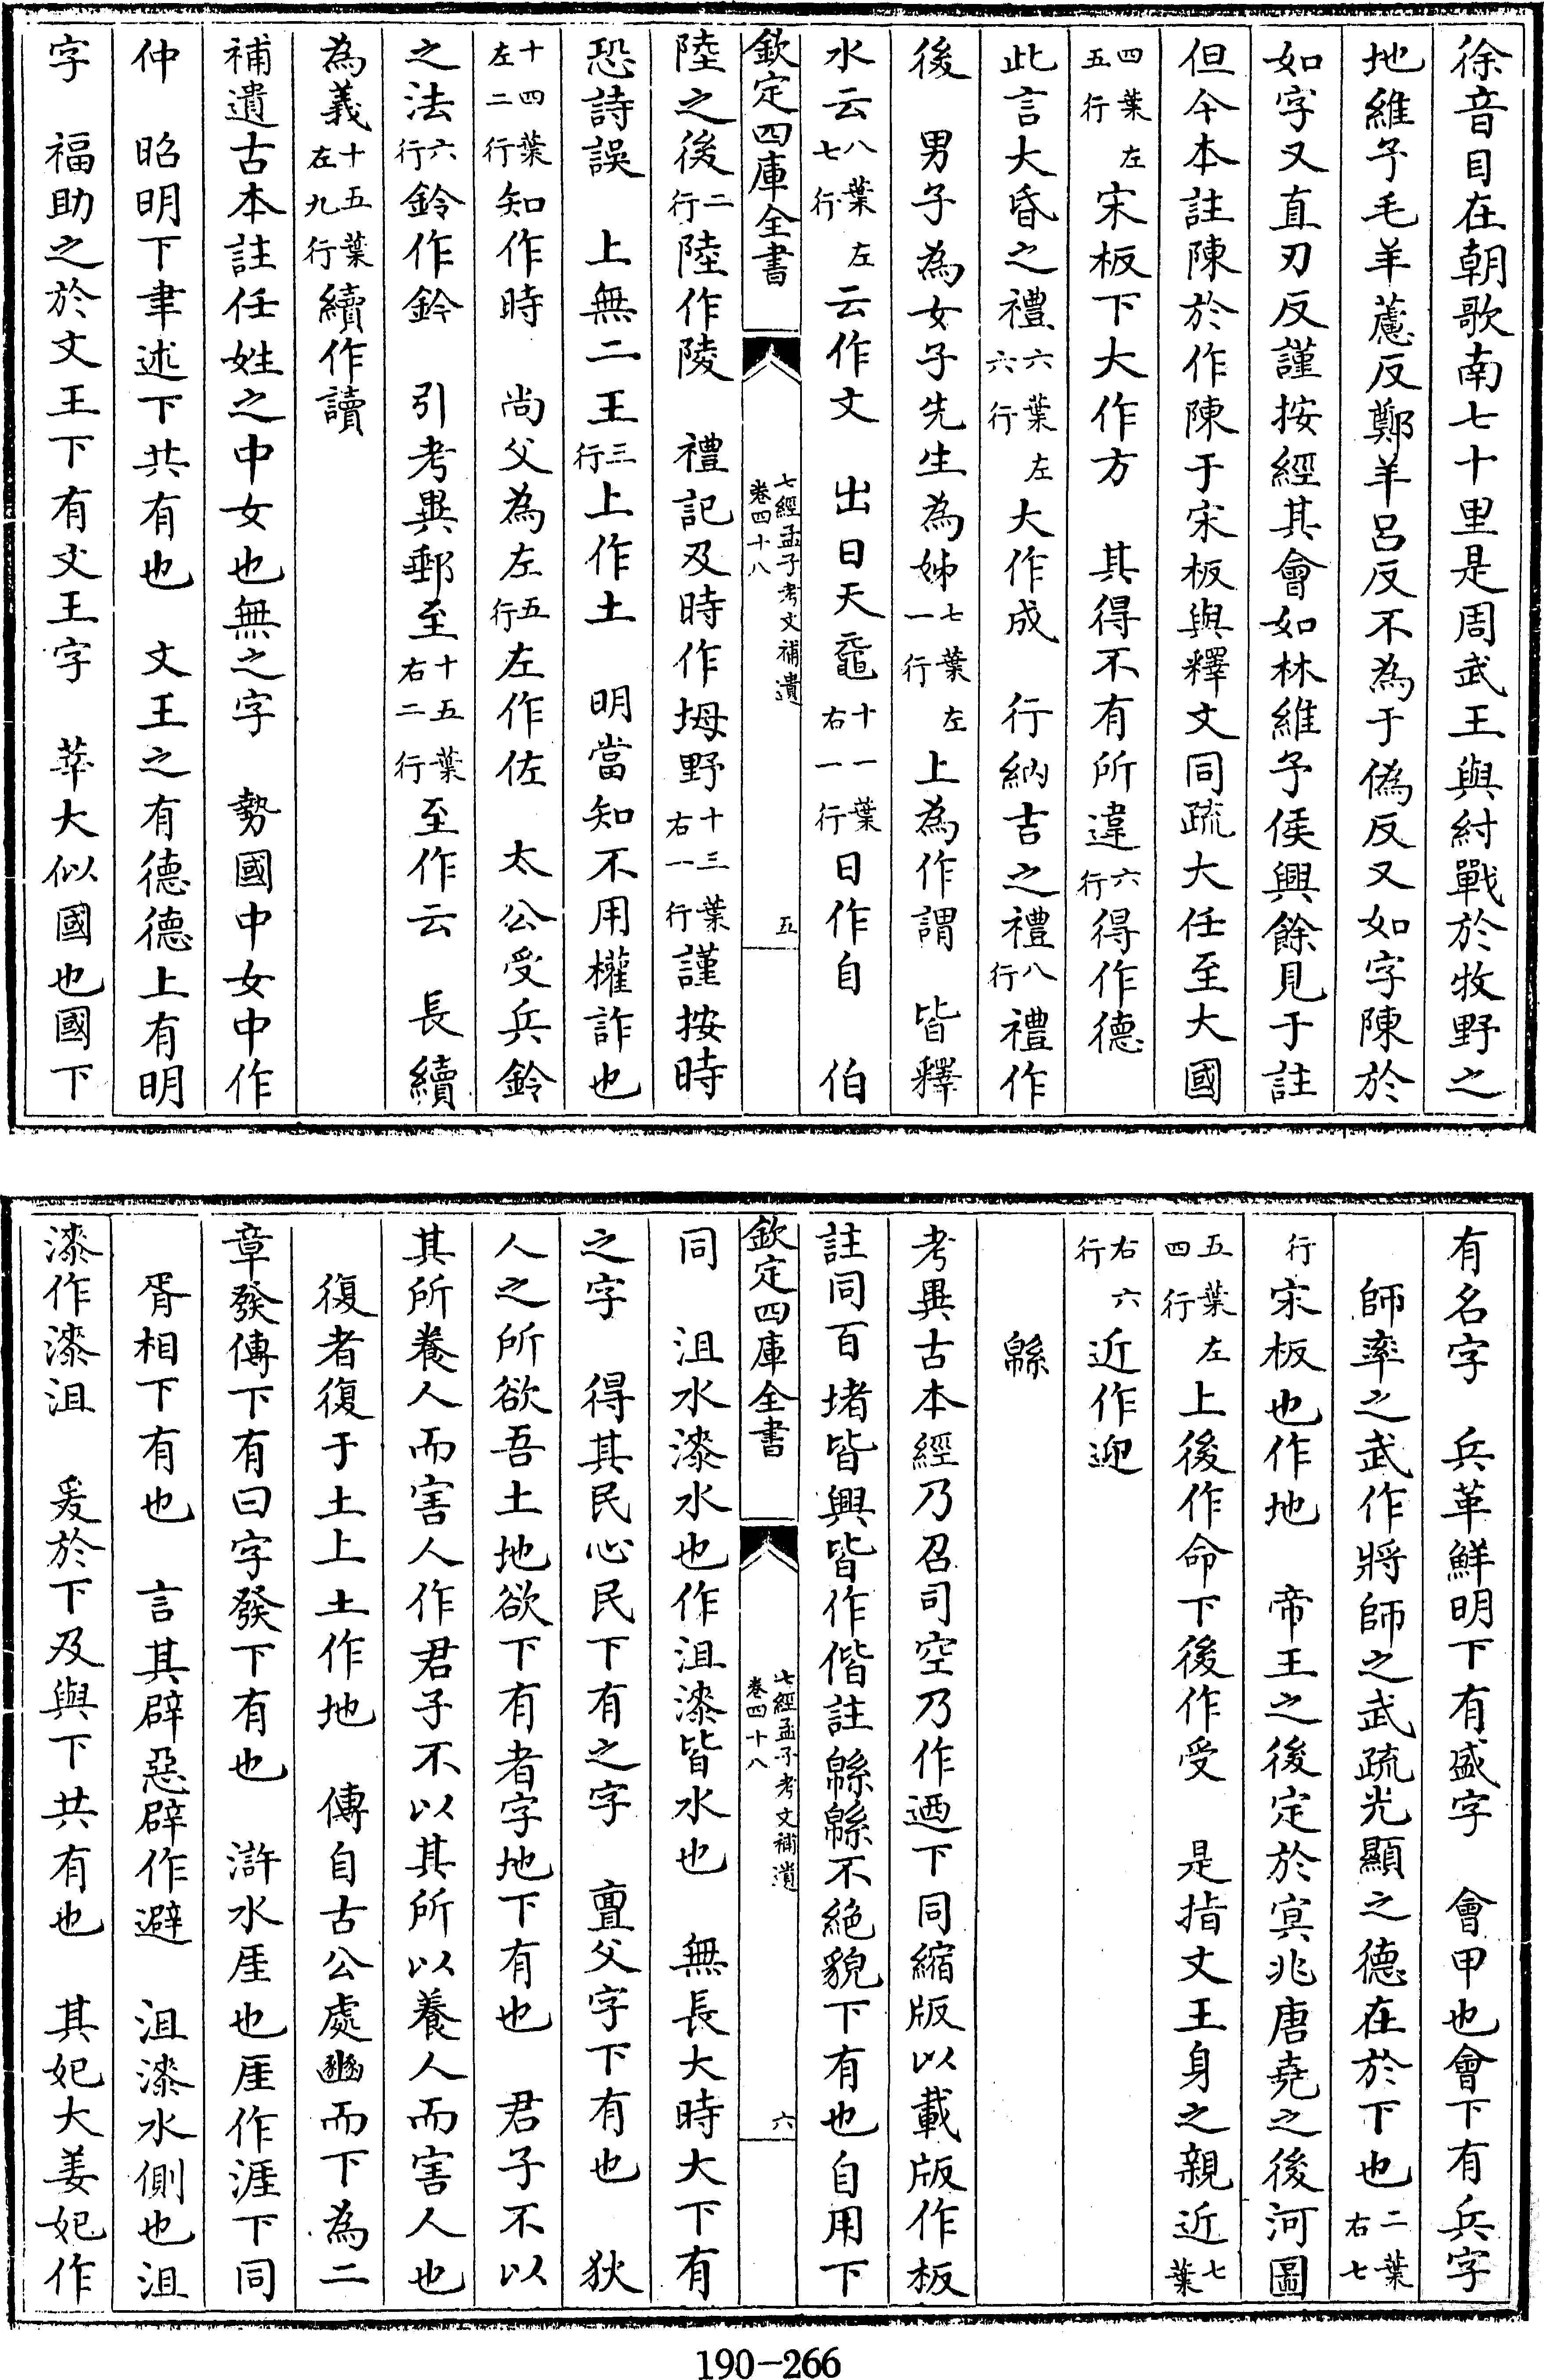 徐音目在朝歌南七十里是周武王與紂戰於牧野之
地維予毛羊蔗反鄭羊呂反不為于偽反又如字陳於
如字又直刃反謹按經其會如林維予侯興餘見于註
但今本註陳於作陳于宋板與釋文同疏大任至大國
四葉左五行宋板下大作方　其得不有所違六行得作德
此言大昏之禮六葉左六行大作成　行納吉之禮八行禮作
後　男子為女子先生為姊七葉左一行上為作謂　皆釋
水云八葉左七行云作文　出日天黿十一葉右一行日作自　伯
欽定四庫全書　七經孟子考文補遺卷四十八　五
陸之後二行陸作陵　禮記及時作坶野十三葉右一行謹按時
恐詩誤　上無二王三行上作土　明當知不用權詐也
十四葉左二行知作時　尚父為左五行左作佐　太公受兵鈴
之法六行鈴作鈐　引考異郵至十五葉右二行至作云　長續
為義十五葉左九行續作讀
補遺古本註任姓之中女也無之字　勢國中女中作
仲　昭明下聿述下共有也　文王之有德德上有明
字　福助之於文王下有文王字　莘大似國也國下
有名字　兵革鮮明下有盛字　會甲也會下有兵字
師率之武作將師之武疏光顯之德在於下也二葉右七
行宋板也作地　帝王之後定於冥兆唐堯之後河圖
五葉左四行上後作命下後作受　是指文王身之親近七葉
右六行近作迎
緜
考異古本經乃召司空乃作迺下同縮版以載版作板
註同百堵皆興皆作偕註緜緜不絶貌下有也自用下
欽定四庫全書　七經孟子考文補遺卷四十八　六
同　沮水漆水也作沮漆皆水也　無長大時大下有
之字　得其民心民下有之字　亶父字下有也　狄
人之所欲吾土地欲下有者字地下有也　君子不以
其所養人而害人作君子不以其所以養人而害人也
復者復于土上土作地　傳自古公處豳而下為二
章發傳下有曰字發下有也　滸水厓也厓作涯下同
胥相下有也　言其辟惡辟作避　沮漆水側也沮
漆作漆沮　爰於下及與下共有也　其妃大姜妃作
190-266